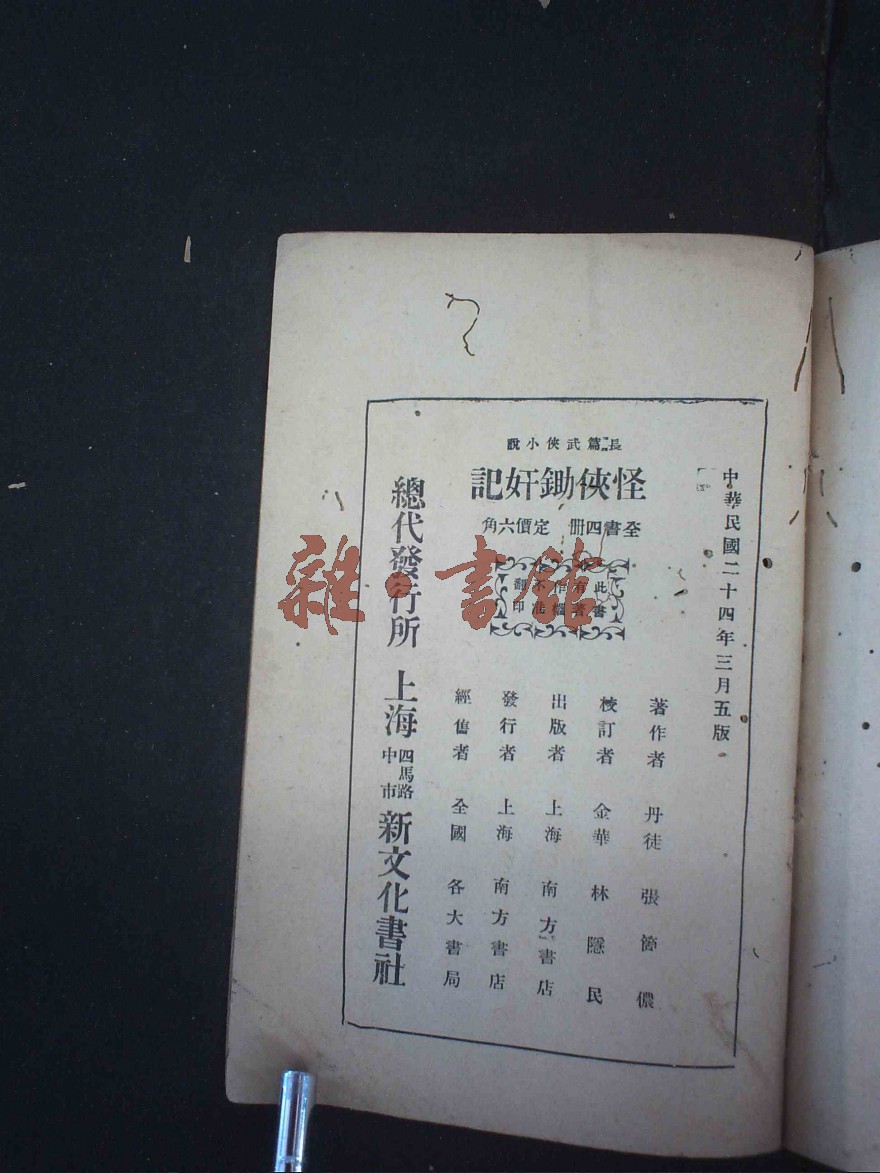 中華民國二十四年三月五版
長篇武俠小說
怪俠鋤奸記
全書四冊 定價六角
此書
有著
作權
不准
翻印
著作者 丹徒 張箇儂
校訂者 金華 林隱民
出版者 上海 南方書店
發行者 上海 南方書店
經售者 全國 各大書局
總代發行所 上海 四馬路中市 新文化書社
雜·書館